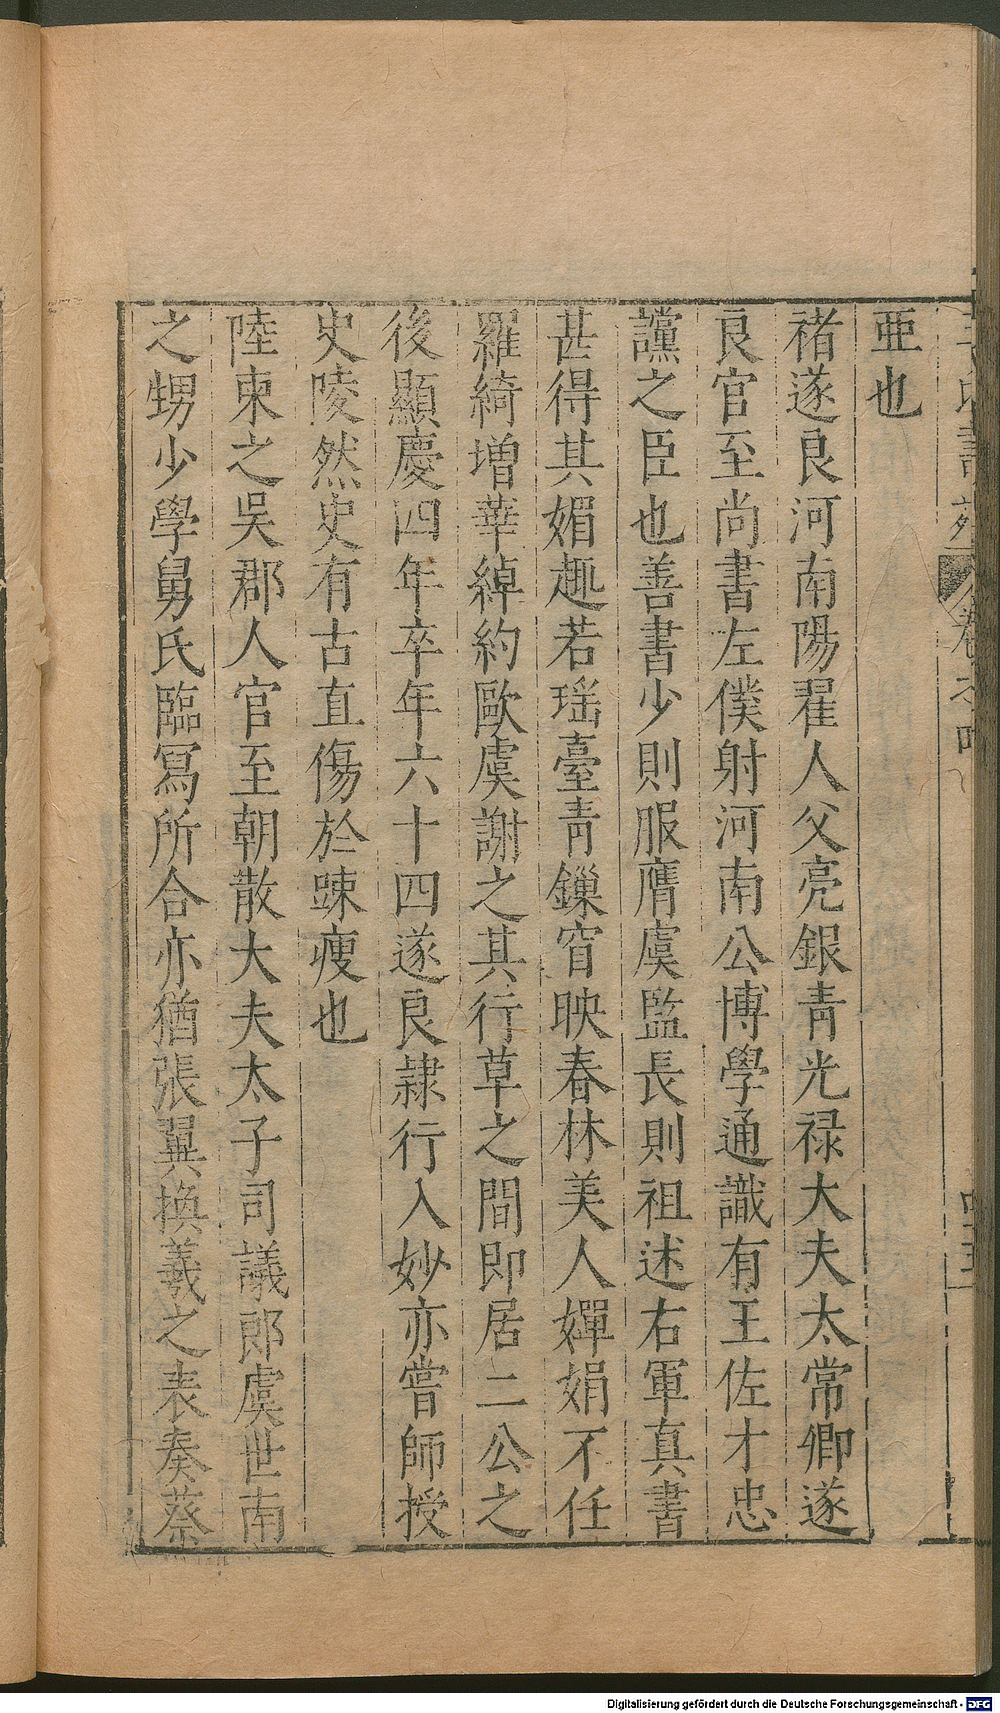 亜也
褚遂良河南陽翟人父亮銀青光禄大夫太常卿遂
良官至尚書左僕射河南公博學通識有王佐才忠
讜之臣也善書少則服膺虞監長則祖述右軍真書
甚得其媚趣若瑶臺青鏁窅映春林美人嬋娟不任
羅綺增華綽約歐虞謝之其行草之間即居二公之
後顯慶四年卒年六十四遂良隷行入妙亦甞師授
史陵然史有古直傷於踈瘦也
陸柬之吳郡人官至朝散大夫太子司議郎虞世南
之甥少學舅氏臨冩所合亦猶張翼換羲之表奏蔡
Digitalisierung gefördert durch die Deutsche Forschungsgemeinschaft - DFG